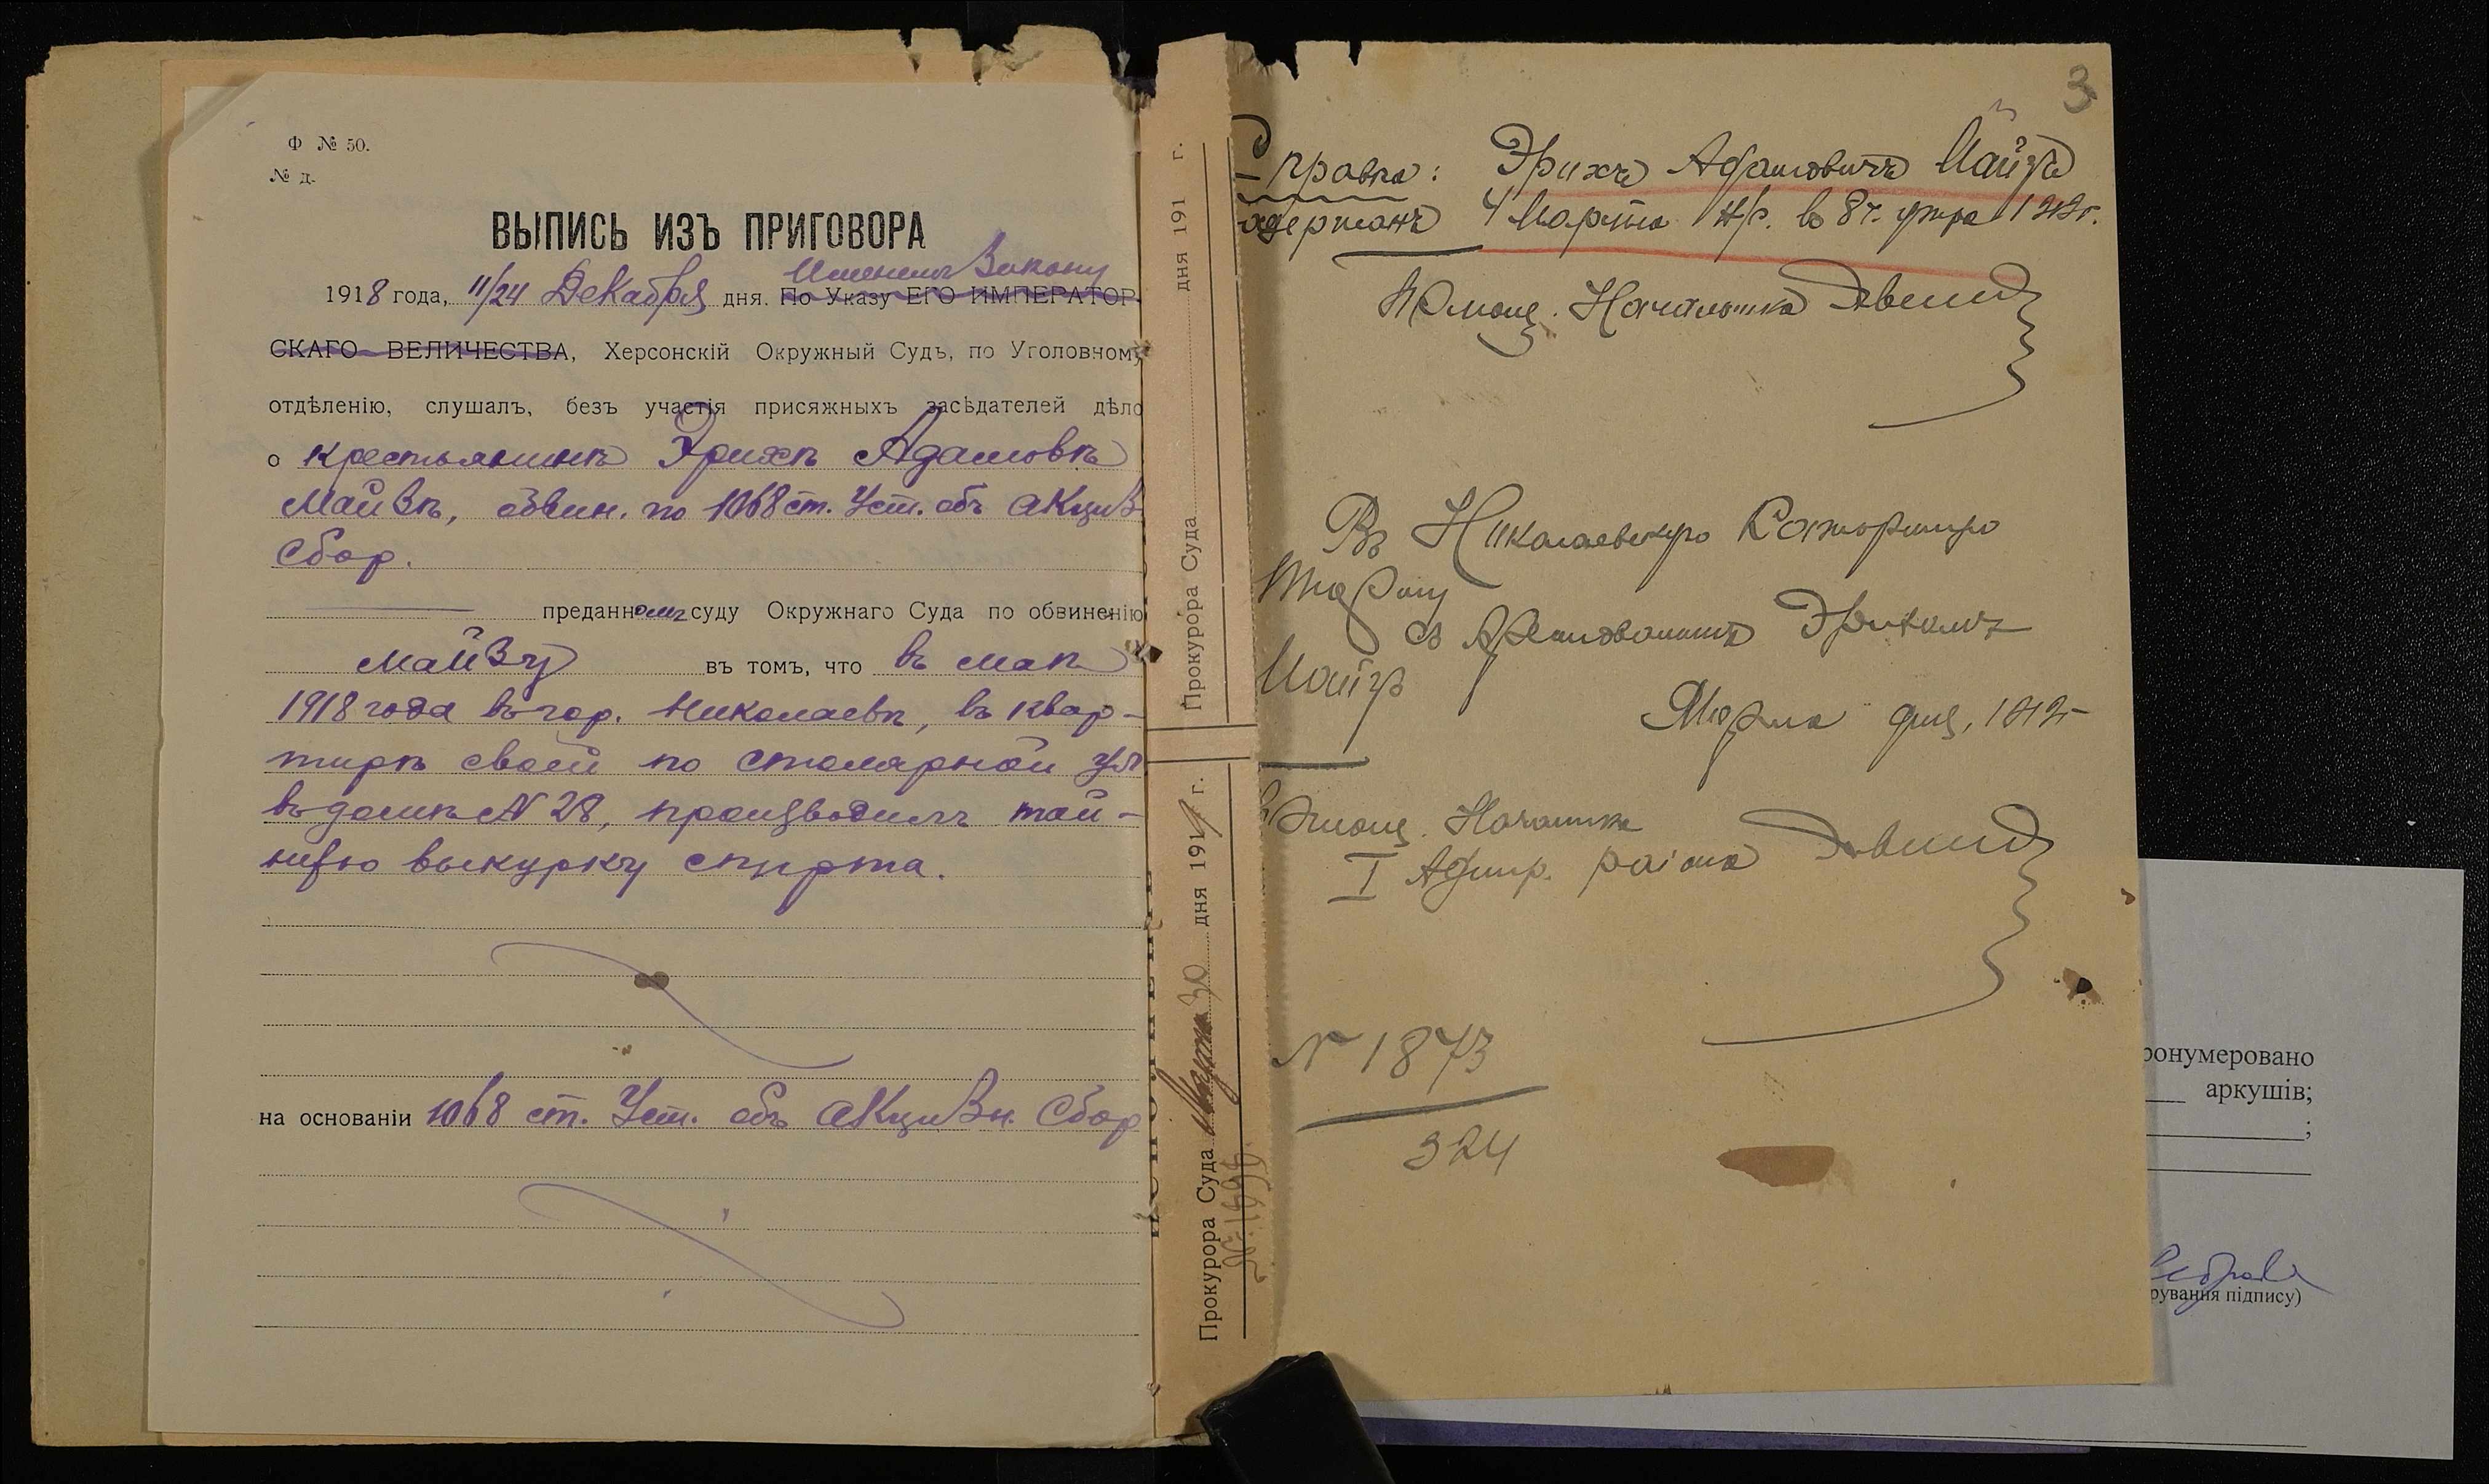 Ф № 50.
№ д.
ВЫПИСЬ ИЗЪ ПРИГОВОРА
Именемъ Закону
1918 года, 11/24 Декабря дня. По Указу ЕГО ИМПЕРАТОР-
СКАГО ВЕЛИЧЕСТВА, Херсонскій Окружный Судъ, по Уголовному
отдѣленію, слушалъ, безъ участія присяжныхъ засѣдателей дѣло
о крестьянинѣ Эрихѣ Адамовѣ
Майзѣ, обвин. по 1068 ст. Уст. объ акциз.
сбор.
преданномъ суду Окружнаго Суда по обвиненію
Майзу въ томъ, что въ маѣ
1918 года въ гор. Николаевѣ, въ квар-
тирѣ своей по столярной ул
въ домѣ № 28, производилъ тай-
ную выкурку спирта.
на основаніи 1068 ст. Уст. объ акцизн. сбор
Прокурора Суда дня 191 г.
Прокурора Суда Марта 30 дня 1919 г.
3
Справка: Эрихъ Адамовичъ Майзъ
задержанъ 4 Марта н/с. в 8 ч. утра 1919 г.
Помощ. Начальника
Въ Николаевскую Каторжную
Тюрьму
съ арестованнымъ Эрихомъ
Майзъ
Марта дня, 1919
Помощ. Начальника
I Адмир. района
№ 1873
324
ронумеровано
аркушів;
;
рування підпису)